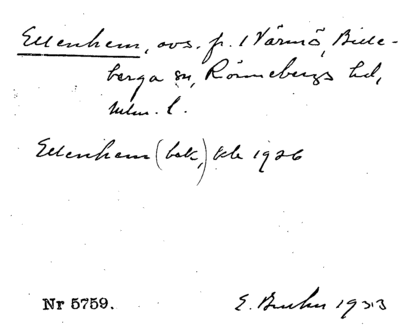 Ellenhem, avs. p. 1 Värmö, Bille-
berga sn, Rönnebergs hd,
Mlm. l.
Ellenhem (bok, kb 1926
Nr 5759. E. Bruhn 1933